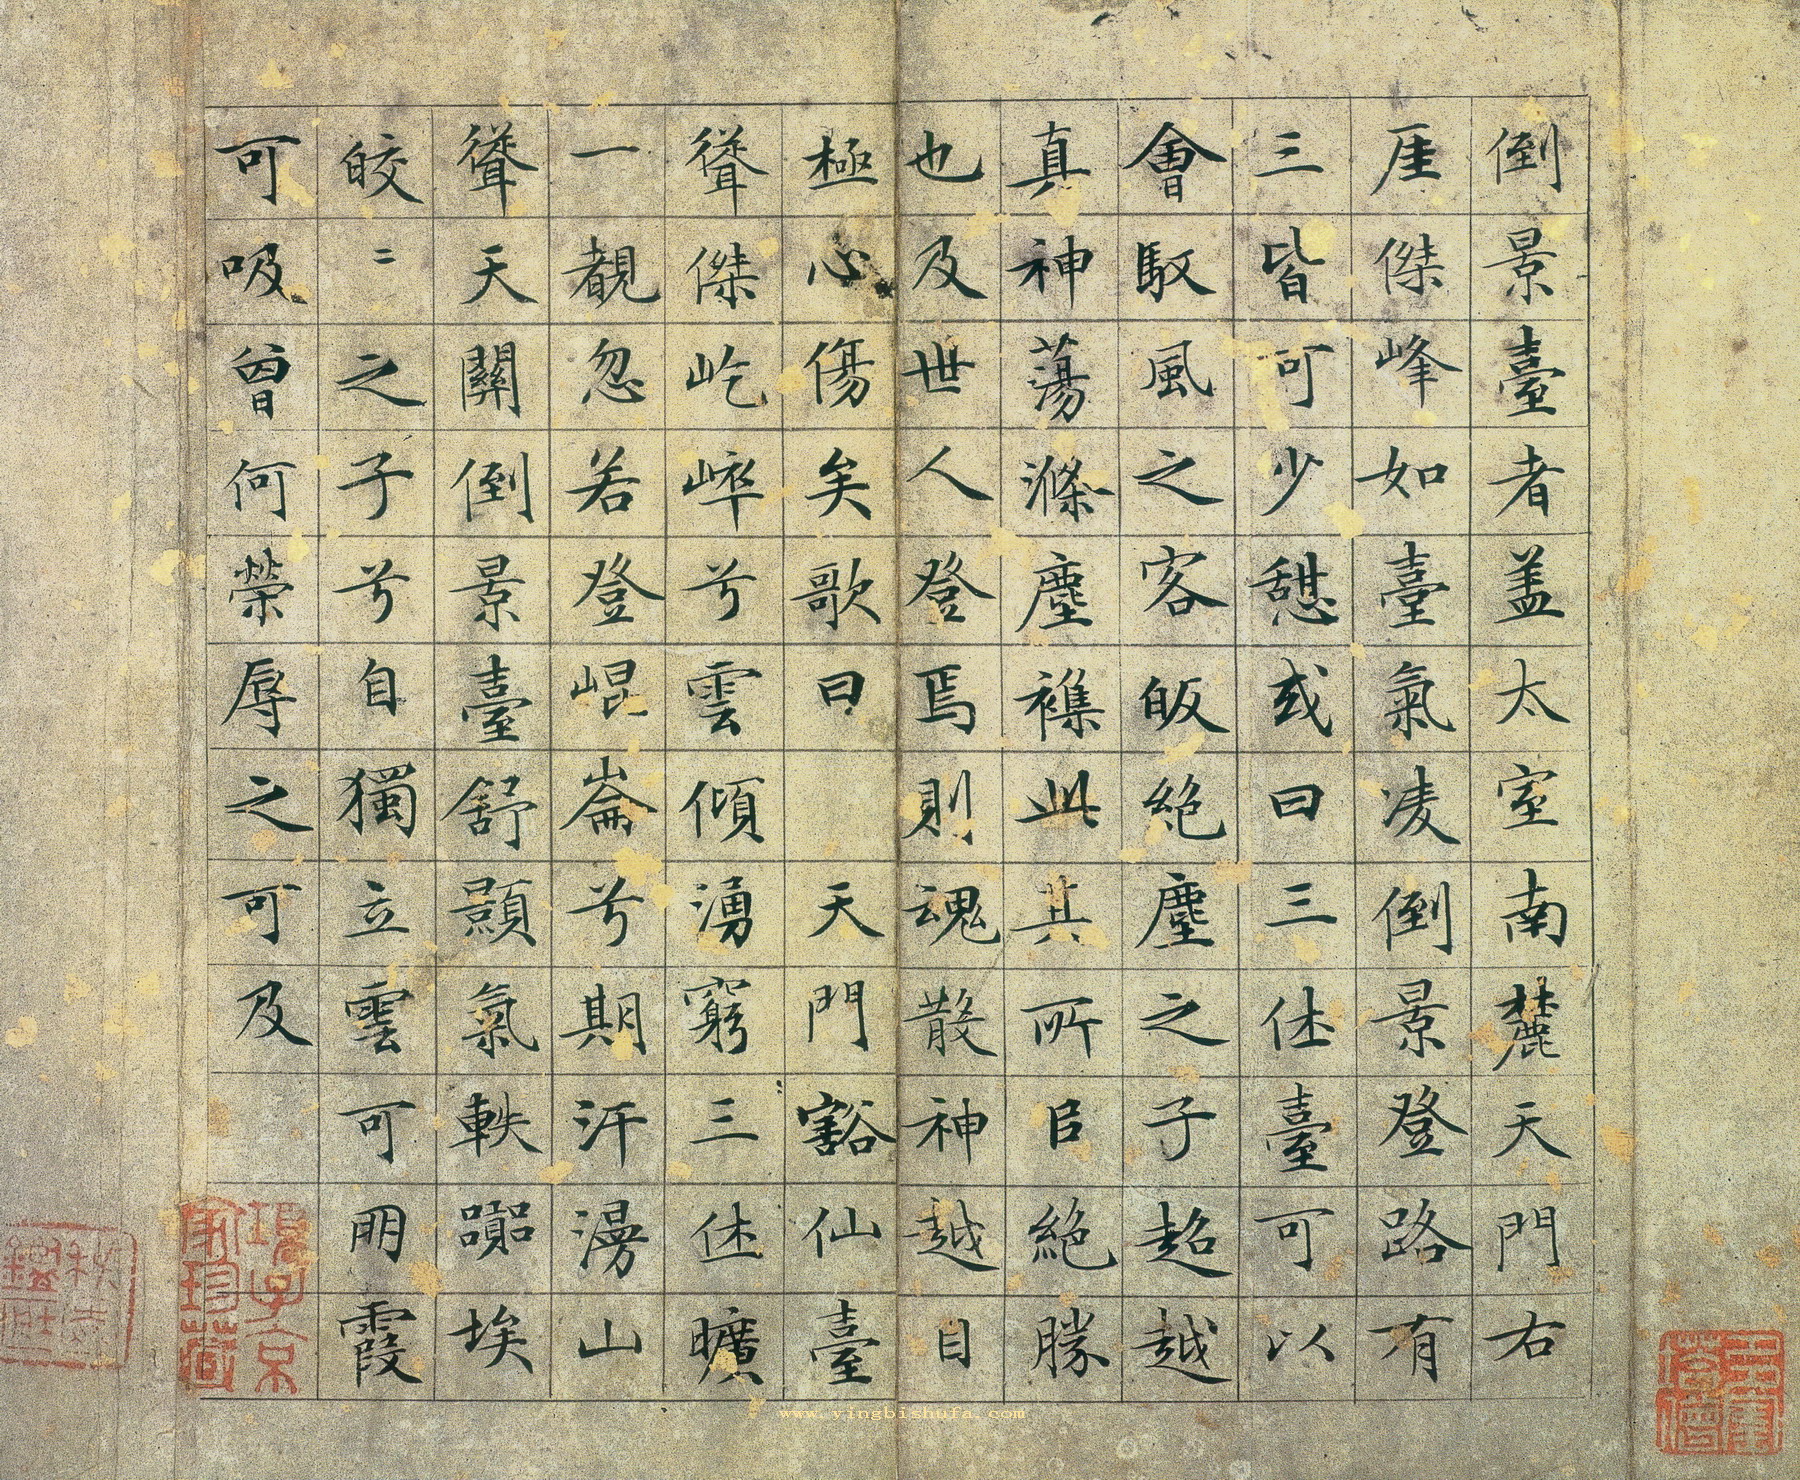 倒景臺者盖太室南麓天門右
厓傑峰如臺氣凌倒景登路有
三皆可少憇或曰三休臺可以
會馭風之客皈絶塵之子超越
真神蕩滌塵襍此其所㠯絶勝
也及世人登焉則魂散神越目
極心傷矣歌曰 天門豁仙臺
聳傑屹崪兮雲傾湧窮三休曠
一覩忽若登崐崙兮期汗漫山
聳天關倒景臺舒顥氣軼嚻埃
皎〻之子兮自獨立雲可朋霞
可吸曾何榮辱之可及
項子京家珍藏
www.yingbishufa.com